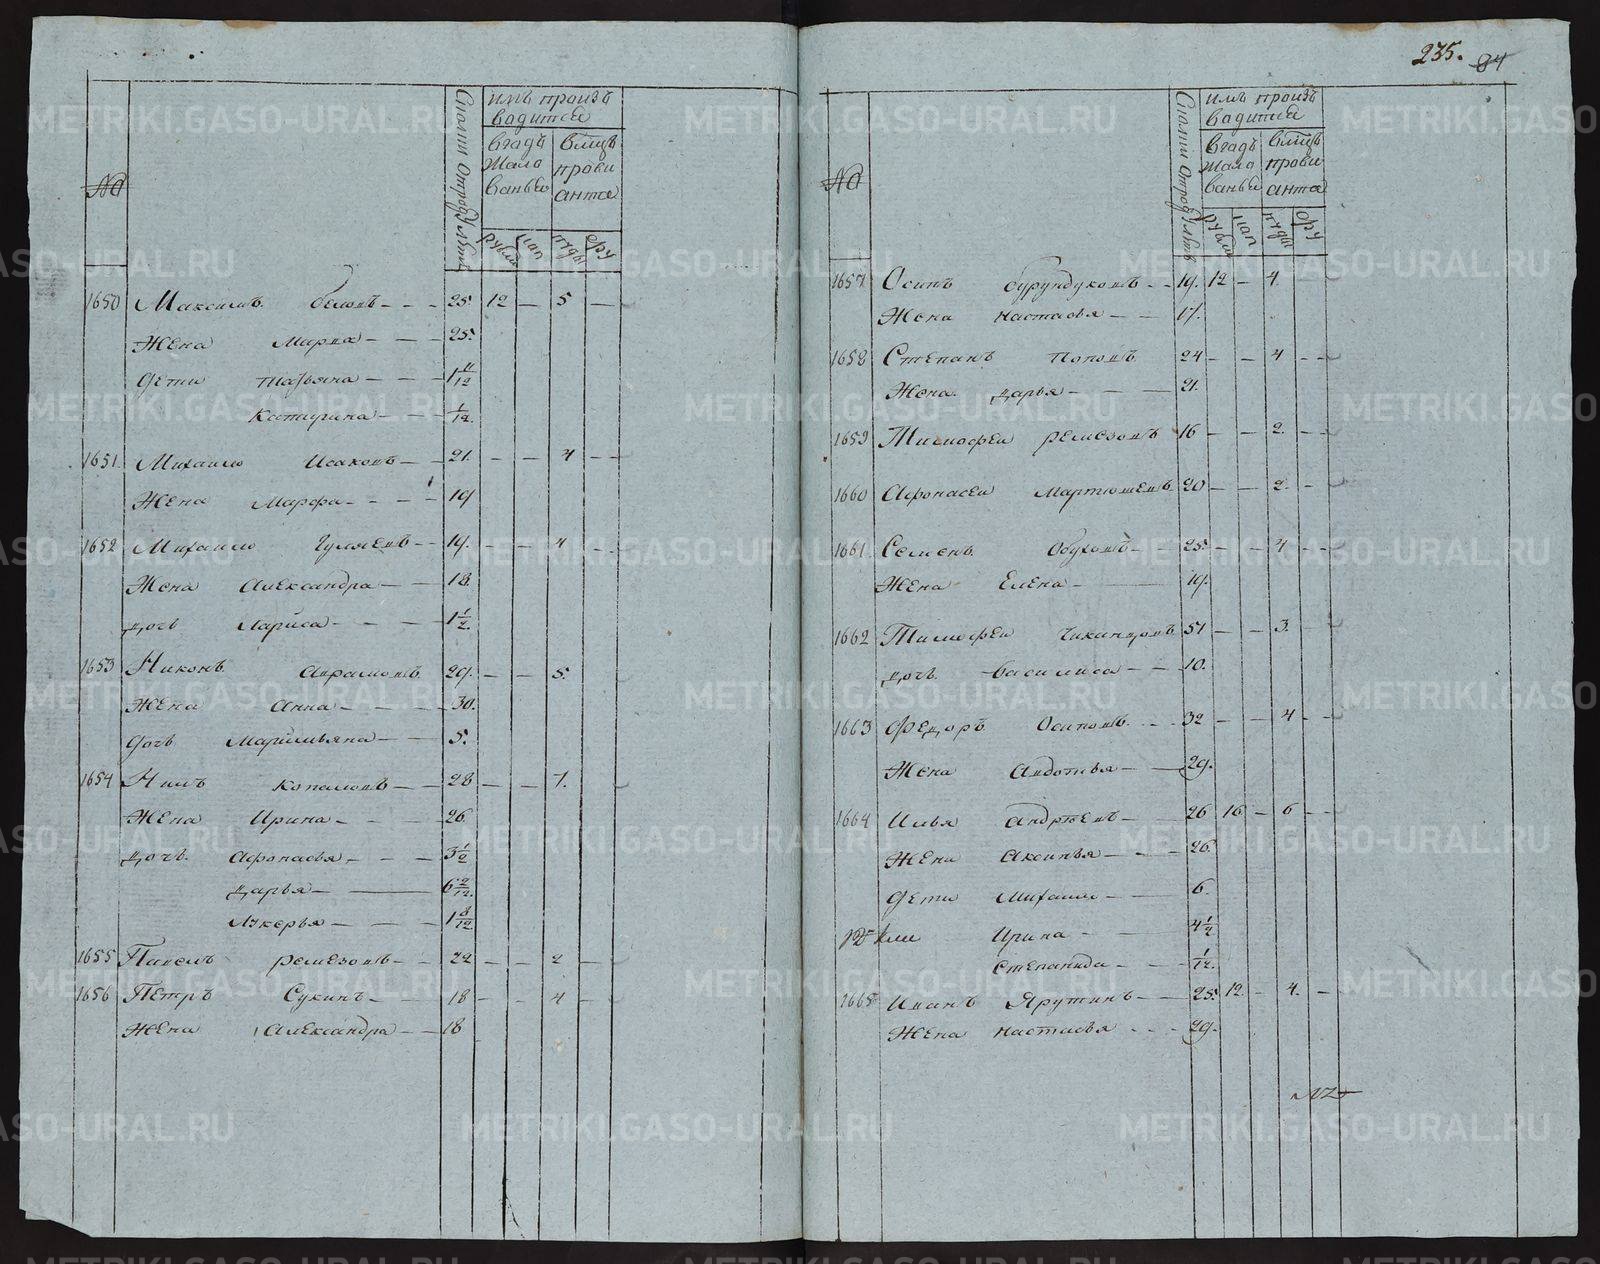 235. 84
№
Сколки Отроду лѣтъ
имъ произъ
водитсе
вгадъ
жало
ванье
вмцъ
прови
анта
рубли
коп
пуды
фру
1650 Максимъ беловъ - - - 25 12 — 5 —
Жена Марѳа — — — 25.
дети татьяна — — — 1 11/12
Катерина — — — 1/12.
1651 Михаило Исаковъ — — 21. — — 4 — —
Жена Марфа — - - - 19
1652 Михаило Гуляевъ — - 19. — — 4 — -
Жена Александра — — 18.
дочь Лариса — — — — 1 1/2.
1653 Никонъ Аврамовъ 29. — — 5.
Жена Анна — — — — 30.
дочь Маримьяна — — 5.
1654 Нилъ Копаловъ — — 28 — — 7.
Жена Ирина — — — 26
дочь. Афонасья — — — 3 1/2
Дарья — — 6 2/12.
Лукерья — — — 1 8/12
1655 Павелъ ремезовъ — — 22 — — 2 —
1656 Петръ Сукинъ — — 18 — — 4 —
Жена Александра — — 18
№
Сколки Отроду лѣтъ
имъ произъ
водитсе
вгадъ
жало
ванье
вмцъ
прови
анта
рубли
коп
пуды
фру
1657 Осипъ бурундуковъ - - 19. 12 — 4.
Жена настасья — — 17.
1658 Степанъ Поповъ 24 — — 4 - -
Жена дарья — — — 21.
1659 Тимофеи ремезовъ 16 — — 2. — -
1660 Афонасеи Мартюшевъ 20 — — 2. —
1661. Семенъ Обуховъ — - 25. — — 4 - -
Жена Елена — — 19.
1662 Тимофеи Чиканцовъ 51 — — 3.
дочь василиса — — 10.
1663 Федоръ Осиповъ. - - - 32 — — 4 - -
Жена Авдотья — — 29.
1664 Илья Андрѣевъ — — 26 16 — 6 - -
Жена Аксинья — — — 26.
дети Михаило — — 6.
Ирина — — 4 1/2
Степанида — — 1/12.
1665 Иванъ Ярутинъ — — 25. 12. — 4. —
Жена настасья - - - 29.